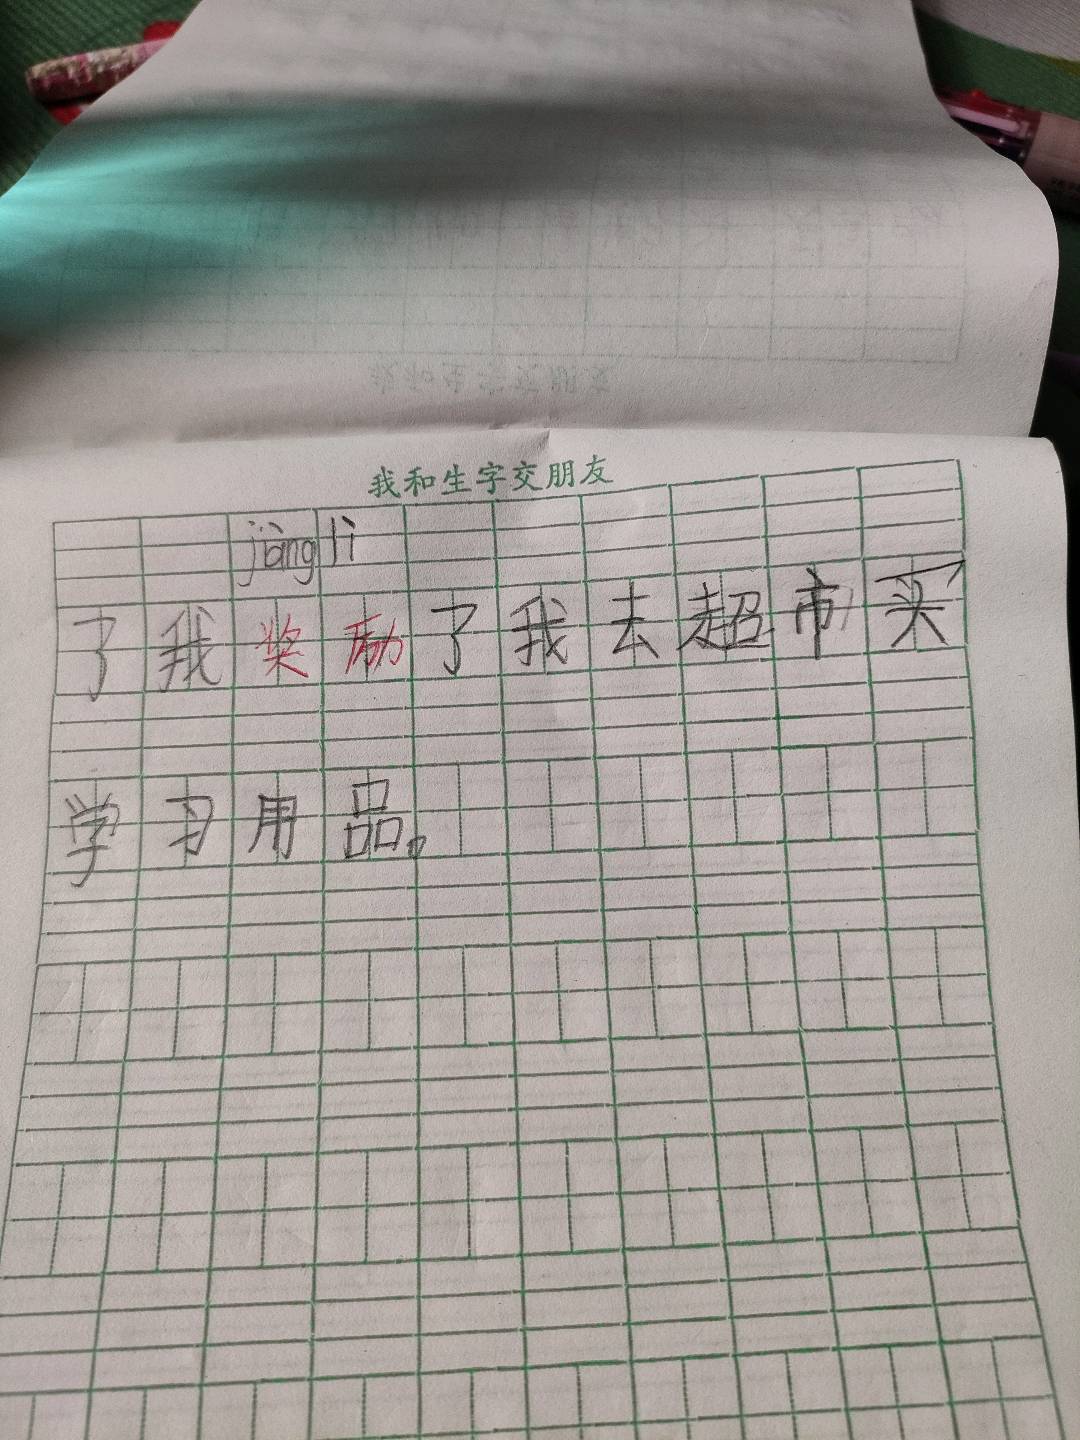 我和生字交朋友
jiàng lì
了我奖励了我去超市买
学习用品。